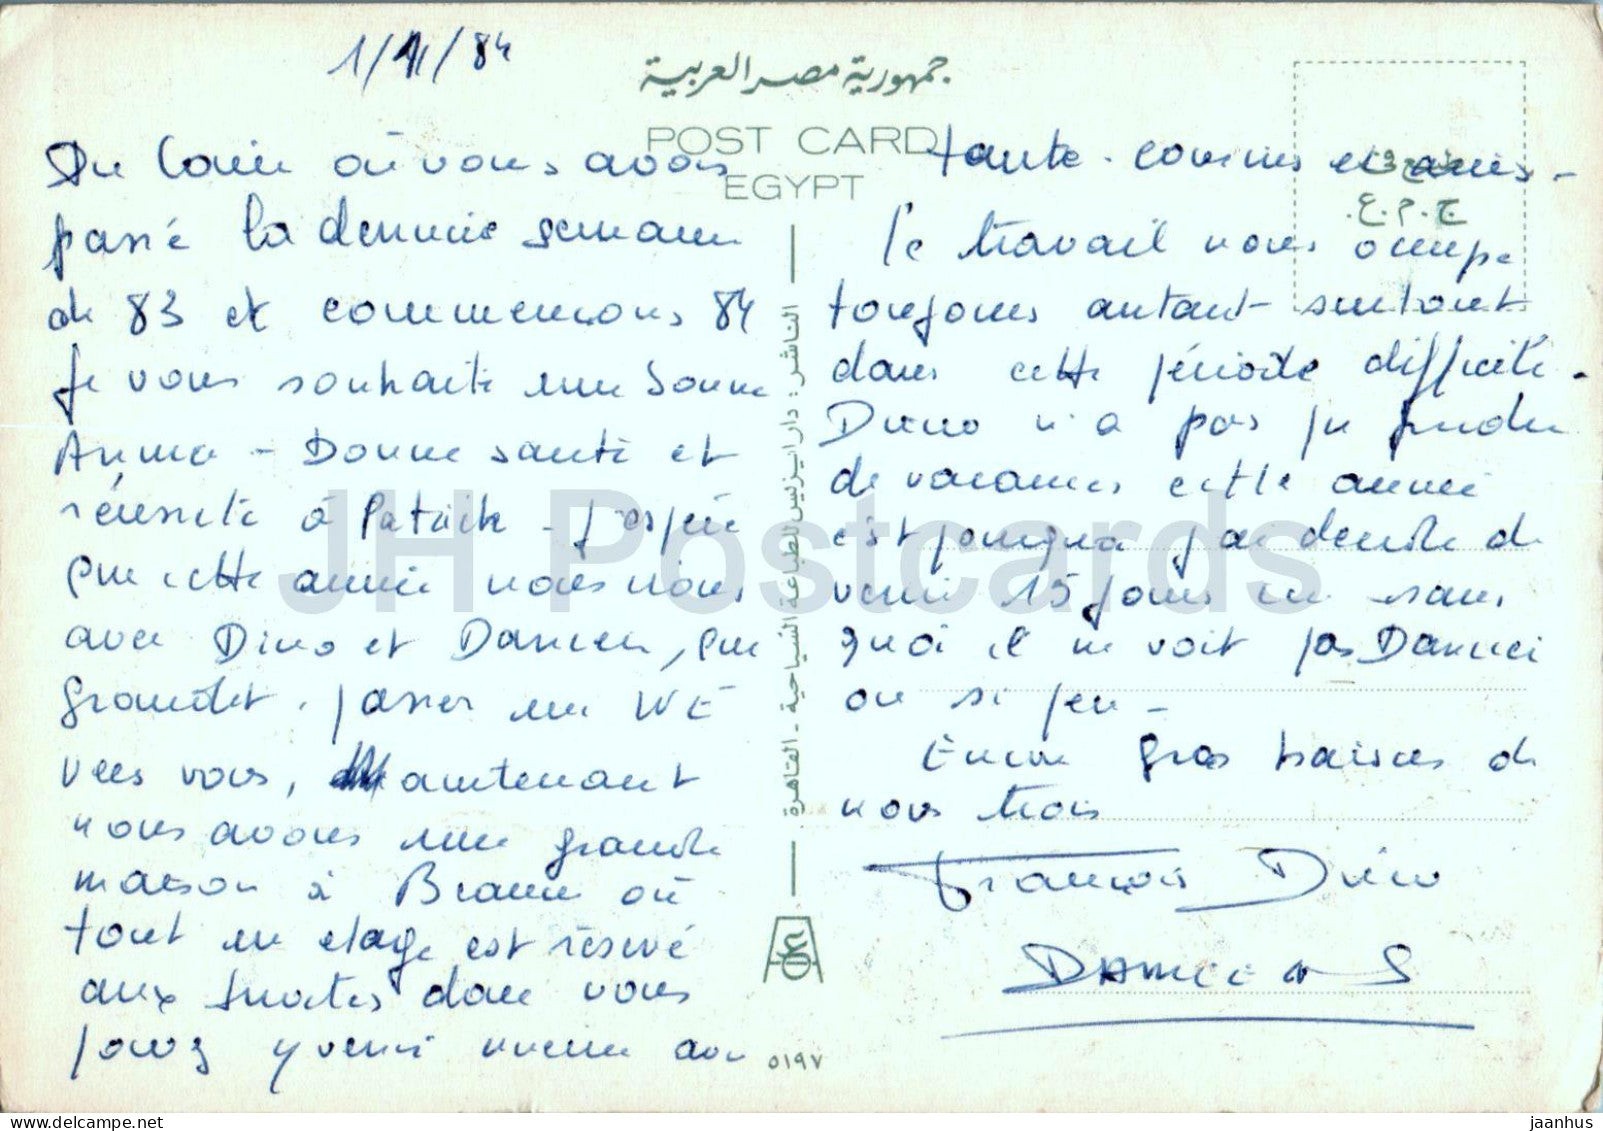 1/1/84
جمهورية مصر العربية
POST CARD
EGYPT
Du Caire où vous avons
passé la dernière semaine
de 83 et commençons 84
je vous souhaite une bonne
Année - Bonne santé et
réussite à Patrick - j'espère
que cette année nous irons
avec Dino et Damien, qui
grandit, passer un WE
vers vous, maintenant
nous avons une grande
maison à où
tout un étage est réservé
aux invités donc vous
pouvez y venir même avec
tante - cousins et amis -
le travail nous occupe
toujours autant surtout
dans cette période difficile -
Dino n'a pas pu prendre
de vacances cette année
c'est pourquoi j'ai décidé de
venir 15 jours ici sans
quoi il ne voit pas Damien
ou si peu -
Encore gros baisers de
nous trois
Dino
DAMIEN S
ج.م.ع.
الناشر : دار ايزيس للطباعة السياحية - القاهرة
٥١٩٧
JH Postcards
www.delcampe.net
jaanhus